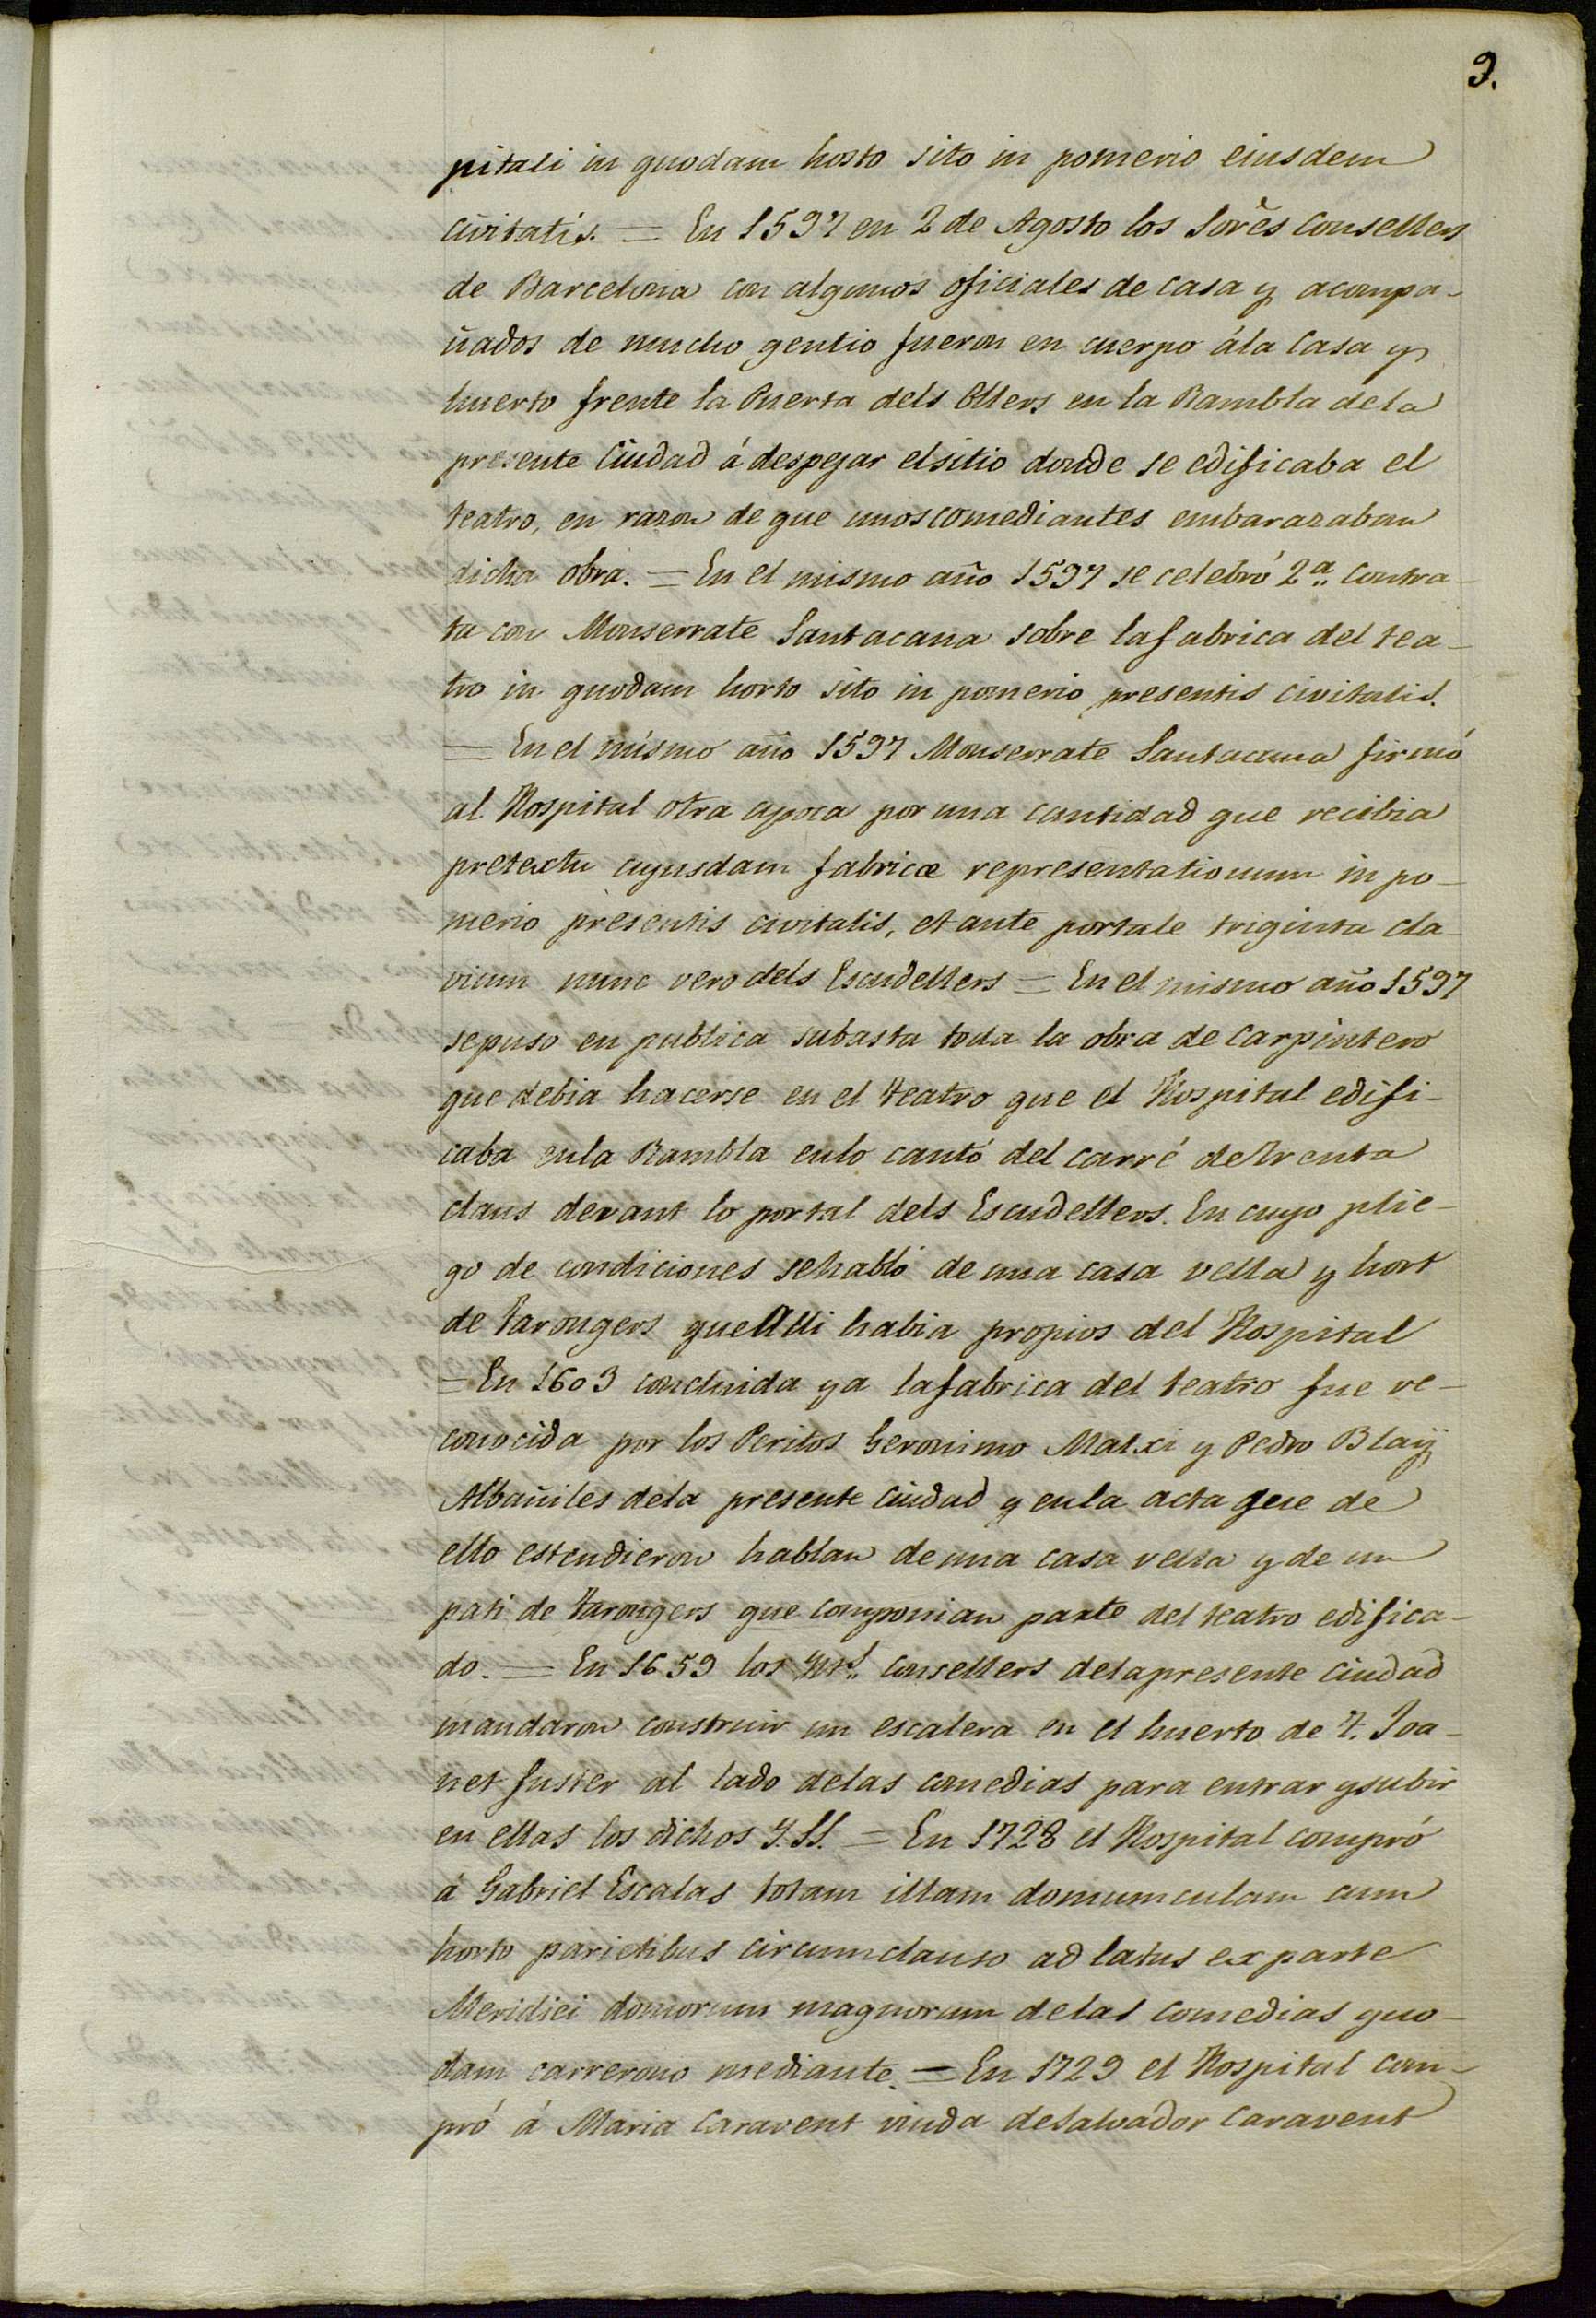 3.
pitali in quodam hosto sito in pomerio eiusdem
civitatis. = En 1597 en 2 de Agosto los Sores Consellers
de Barcelona con algunos oficiales de casa y acompa-
ñados de mucho gentio fueron en cuerpo ála Casa y
huerto frente la Puerta dels Ollers en la Rambla dela
presente Ciudad á despejar elsitio donde se edificaba el
teatro, en razon de que unos comediantes embarazaban
dicha obra. = En el mismo año 1597 se celebró 2ª. contra-
ta con Monserrate Santacana sobre lafabrica del tea-
tro in quodam horto sito in pomerio presentis civitatis.
= En el mismo año 1597 Monserrate Santacana firmó
al Hospital otra apoca por una cantidad que recibia
pretextu cujusdam fabricæ representationum in po-
merio presentis civitatis, et ante portale triginta cla-
vium nunc vero dels Escudellers = En el mismo año 1597
sepuso en publica subasta toda la obra de Carpintero
que debia hacerse en el teatro que el Hospital edifi-
caba enla Rambla enlo cantó del carré deTrenta
claus devant lo portal dels Escudellers. En cuyo plie-
go de condiciones sehabló de una casa vella y hort
de Tarongers queAlli habia propios del Hospital
= En 1603 concluida ya lafabrica del teatro fue re-
conocida por los Peritos Geronimo Matxi y Pedro Blaÿ
Albañiles dela presente Ciudad y enla acta que de
ello estendieron hablan de una casa vella y de un
pati de Tarongers que componian parte del teatro edifica-
do. = En 1659 los consellers delapresente Ciudad
mandaron construir un escalera en el huerto de F. Joa-
net fuster al lado delas comedias para entrar ysubir
en ellas los dichos Y. SS. = En 1728 el Hospital compró
á Gabriel Escalas totam illam domumculam cum
horto parietibus circumclauso ad latus ex parte
Meridiei domorum magnorum delas Comedias quo-
dam carrerono mediante. = En 1729 el Hospital com-
pró á Maria Caravent viuda deSalvador Caravent